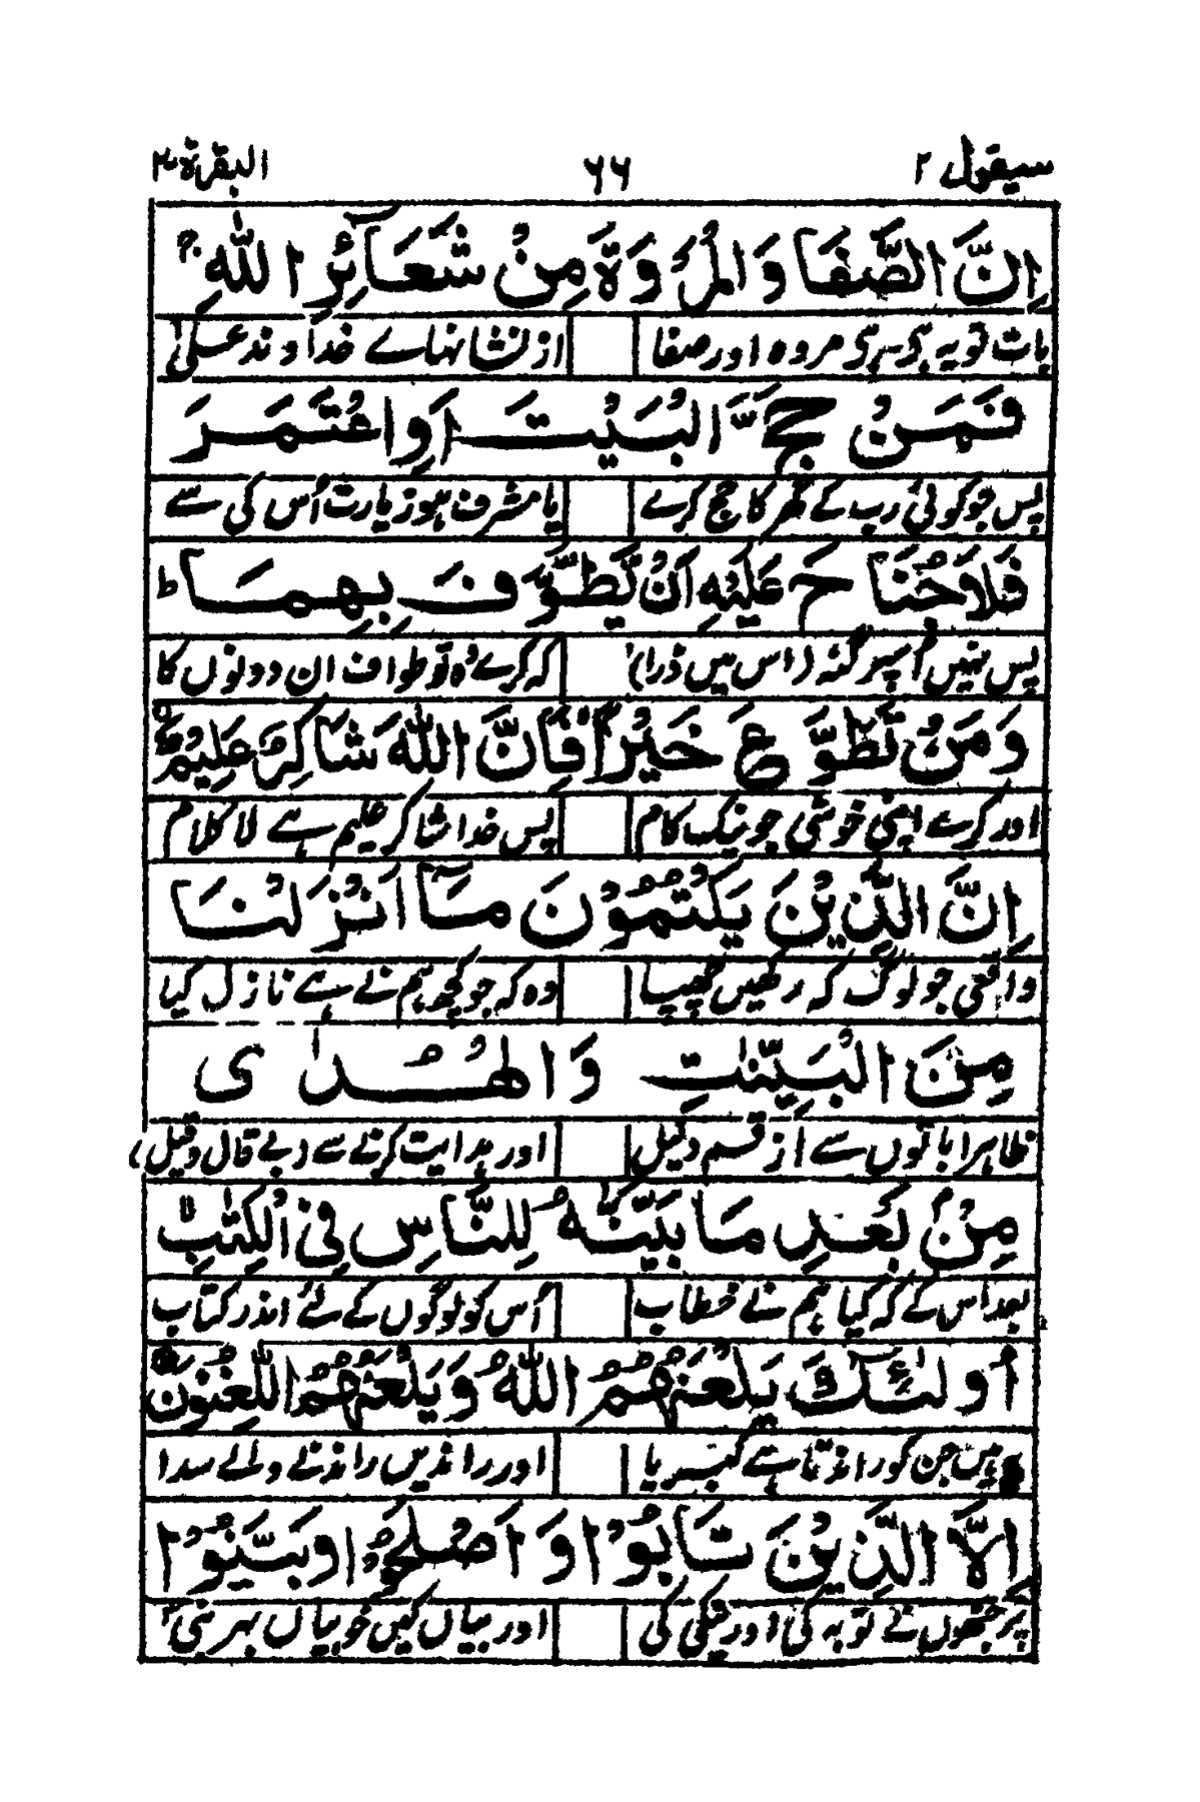 سیقول ۲ ۶۶ البقرة ۲
اِنَّ الصَّفَا وَ الْمَرْوَةَ مِنْ شَعَآئِرِ اللّٰهِ ۚ
بات تو یہ ہی ہے کہ مروہ اور صفا از نشانہائے خداوند علیٰ
فَمَنْ حَجَّ الْبَيْتَ اَوِ اعْتَمَرَ
پس جو کوئی رب کے گھر کا حج کرے یا مشرف ہو زیارت اُس کی سے
فَلَا جُنَاحَ عَلَيْهِ اَنْ يَّطَّوَّفَ بِهِمَا ؕ
پس نہیں اُسپر گنہ (اس میں ذرا) کہ کرے وُہ تو طواف ان دونوں کا
وَ مَنْ تَطَوَّعَ خَيْرًا فَاِنَّ اللّٰهَ شَاكِرٌ عَلِيْمٌ
اور کرے اپنی خوشی جو نیک کام پس خدا شاکر علیم ہے لا کلام
اِنَّ الَّذِيْنَ يَكْتُمُوْنَ مَآ اَنْزَلْنَا
واقعی جو لوگ کہ رکھیں چھپا وہ کہ جو کچھ ہم نے ہے نازل کیا
مِنَ الْبَيِّنٰتِ وَ الْهُدٰى
ظاہرا باتوں سے از قسم دلیل اور ہدایت کرنے سے (بے قال و قیل)
مِنْۢ بَعْدِ مَا بَيَّنّٰهُ لِلنَّاسِ فِي الْكِتٰبِ ۙ
بعد اس کے کہ کیا ہم نے خطاب اُس کو لوگوں کے لئے اندر کتاب
اُولٰٓئِكَ يَلْعَنُهُمُ اللّٰهُ وَ يَلْعَنُهُمُ اللّٰعِنُوْنَ
ہیں جن کو راندتا ہے کبریا اور راندیں راندنے والے سدا
اِلَّا الَّذِيْنَ تَابُوْا وَ اَصْلَحُوْا وَ بَيَّنُوْا
پر جنھوں نے توبہ کی اور نیکی کی اور بیاں کیں خوبیاں بہر نبیؐ